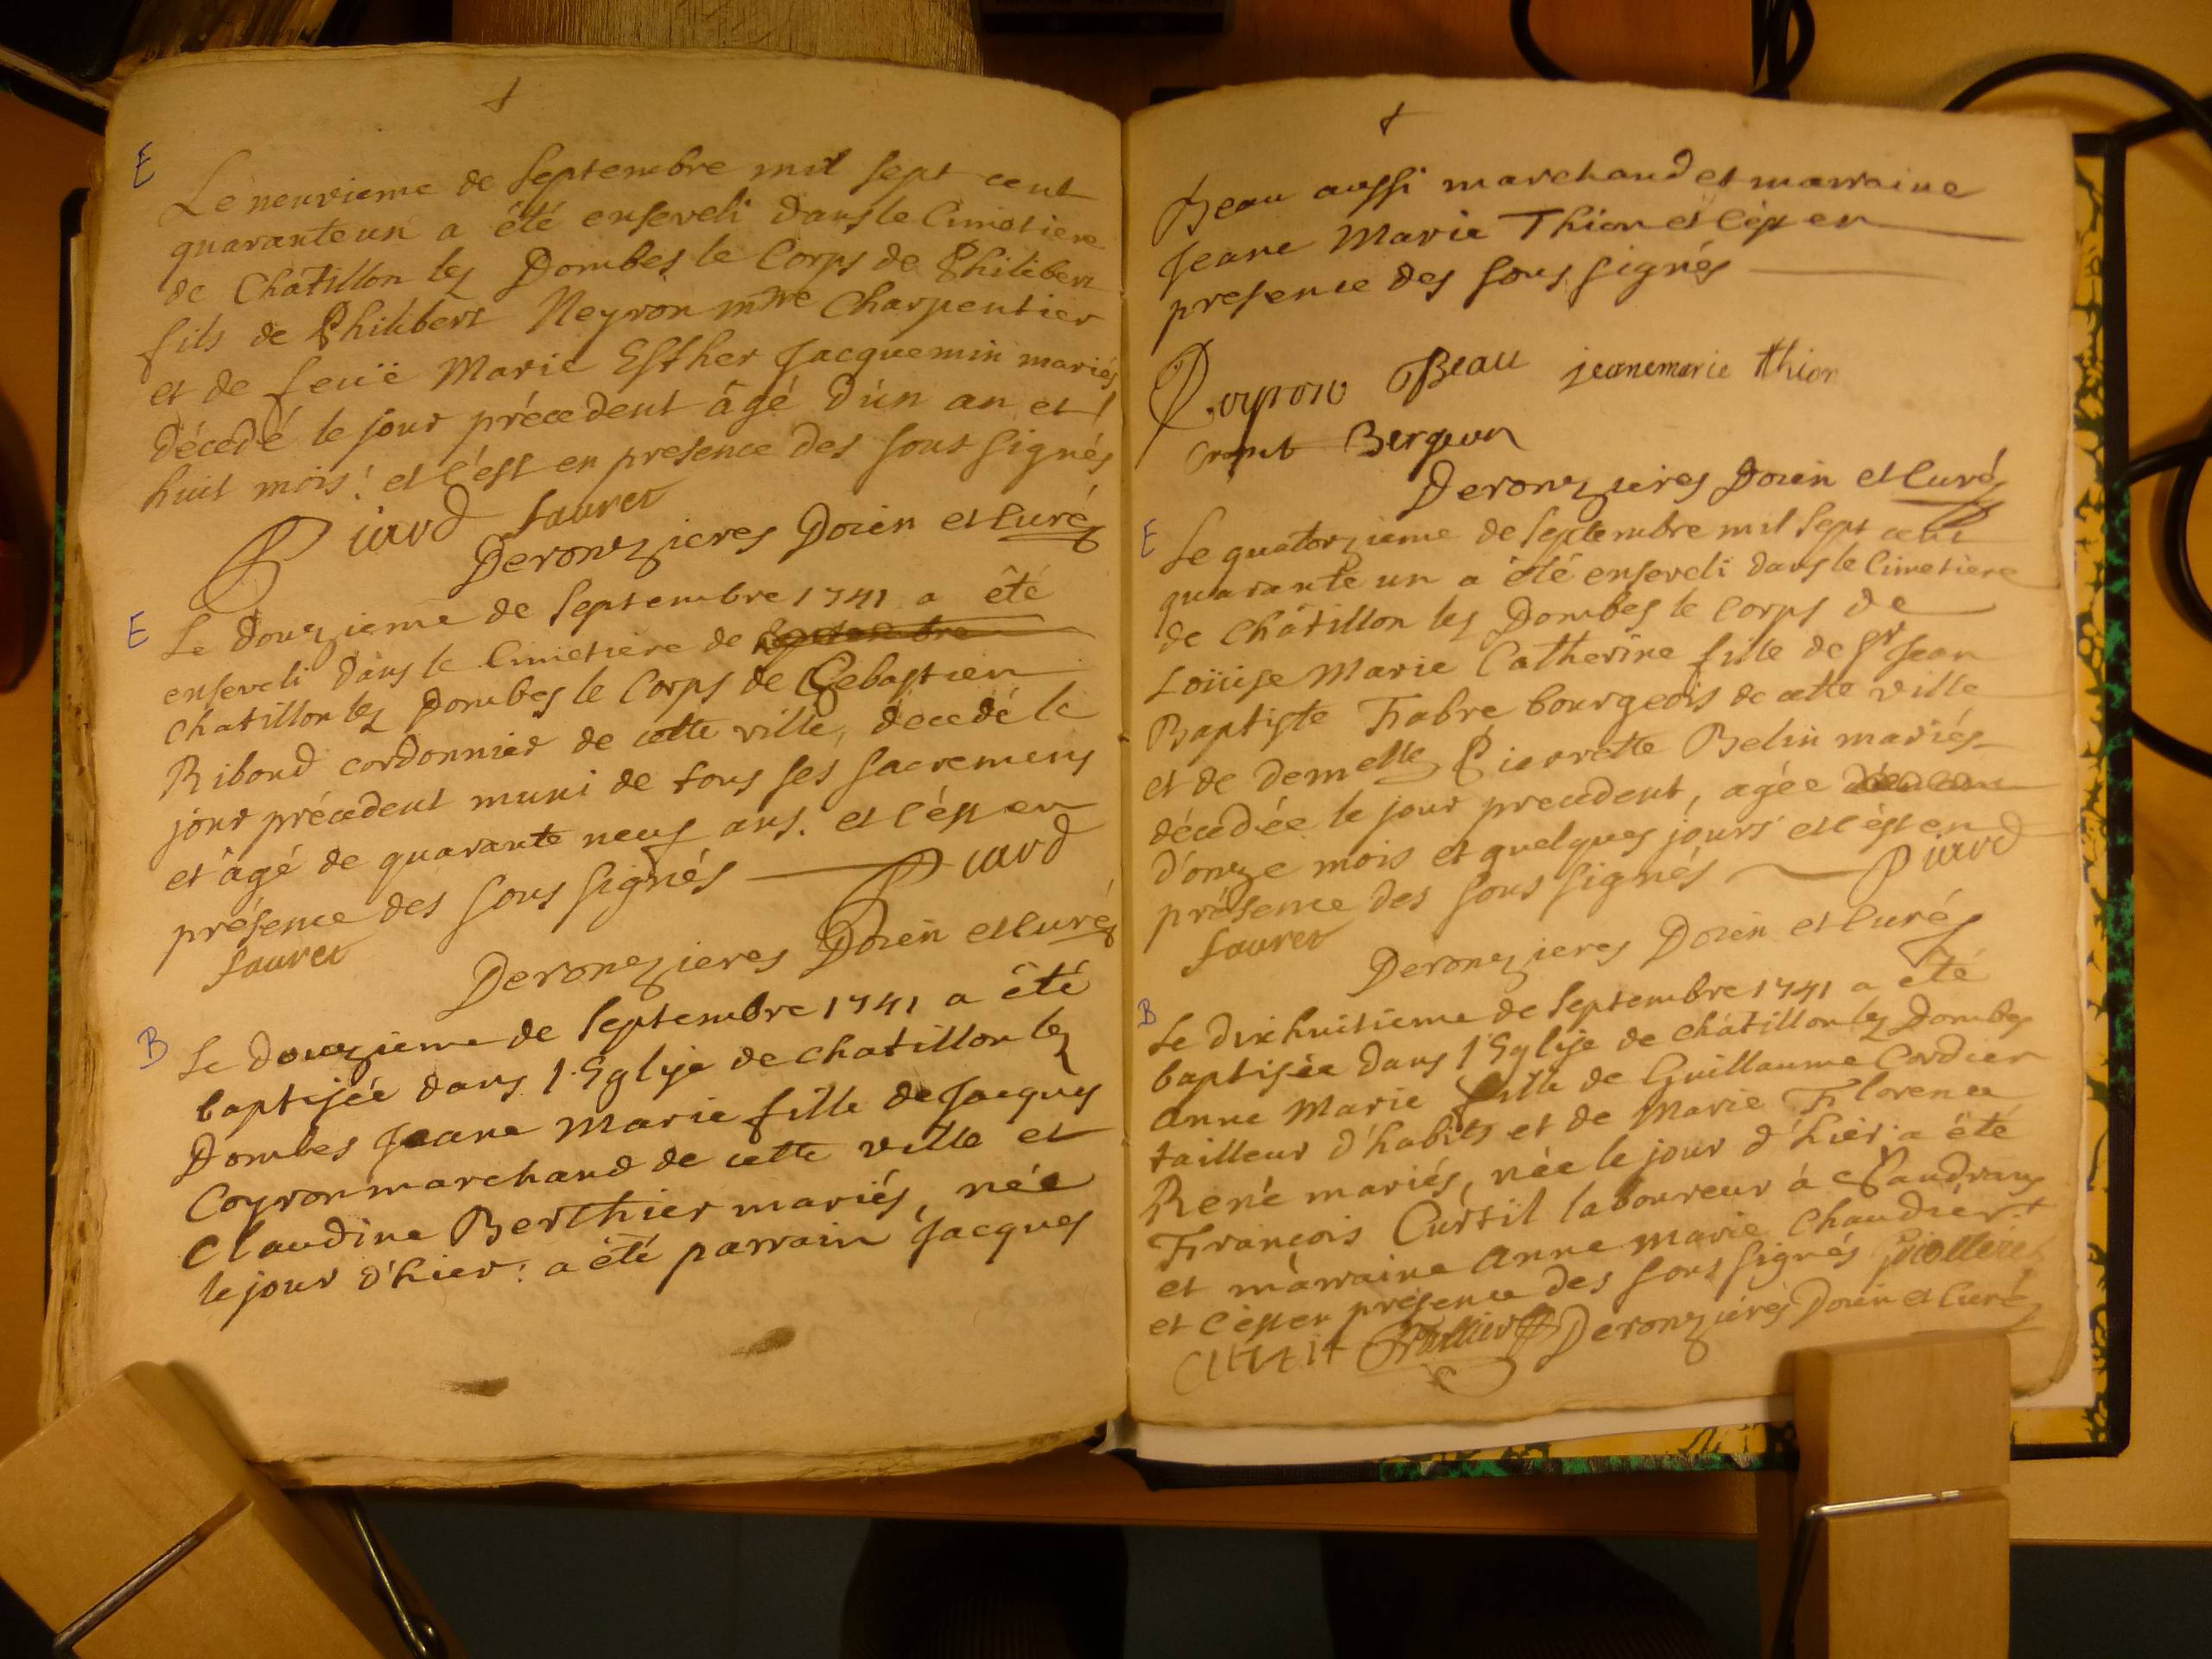 E
Le neuvieme de Septembre mil sept cent
quarante un a été enseveli dans le Cimetiere
de Châtillon les Dombes le Corps de Philibert
fils de Philibert Neyron mtre Charpentier
et de feuë Marie Esther Jacquemin mariés
décedé le jour précedent âgé d'un an et
huit mois: et c'est en presence des sous signés
Piard Sauret
Deronzieres Doien et Curé
E
Le douzieme de Septembre 1741 a été
enseveli dans le Cimetiere de Septembre
Chatillon les Dombes le Corps de Sebastien
Riboud cordonnier de cette ville, décedé le
jour précedent muni de tous ses sacremens
et âgé de quarante neuf ans. et c'est en
présence des sous signés Piard
Sauret
Deronzieres Doien et Curé
B
Le douzieme de Septembre 1741 a été
baptisée dans l'Eglise de chatillon les
Dombes Jeane Marie fille de Jacques
Coyron marchand de cette ville et
Claudine Berthier mariés, née
le jour d'hier: a été parrain Jacques
Beau aussi marchand et marraine
Jeane Marie Thion et c'est en
presence des sous signés
Coyron Beau jeanemarie thion
Bergeron
Deronzieres Doien et Curé
E
Le quatorzieme de Septembre mil sept cent
quarante un a été enseveli dans le Cimetiere
de Châtillon les Dombes le Corps de
Loüise Marie Catherine fille de Sr Jean
Baptiste Fabre bourgeois de cette ville
et de demelle Pierrette Belin mariés
décedée le jour precedent, agée
d'onze mois et quelques jours et c'est en
présence des sous signés Piard
Sauret
Deronzieres Doien et Curé
B
Le dixhuitieme de Septembre 1741 a été
baptisée dans l'Eglise de châtillon les Dombes
Anne Marie fille de Guillaume Cordier
tailleur d'habits et de Marie Florence
René mariés, née le jour d'hier: a été
François Curtil laboureur à Sandrans
et marraine Anne Marie Chaudier
et c'est en présence des sous signés
Deronzieres Doien et Curé